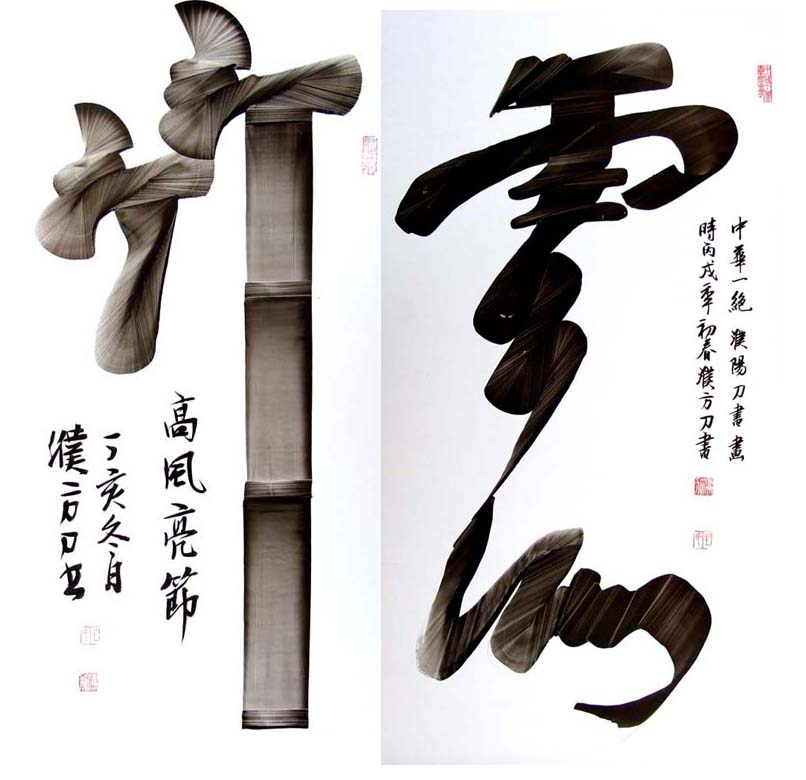 竹
高风亮節
丁亥冬月
濮方刀书
雲
中華一絶 濮陽刀書畫
時丙戌年初春濮方刀書